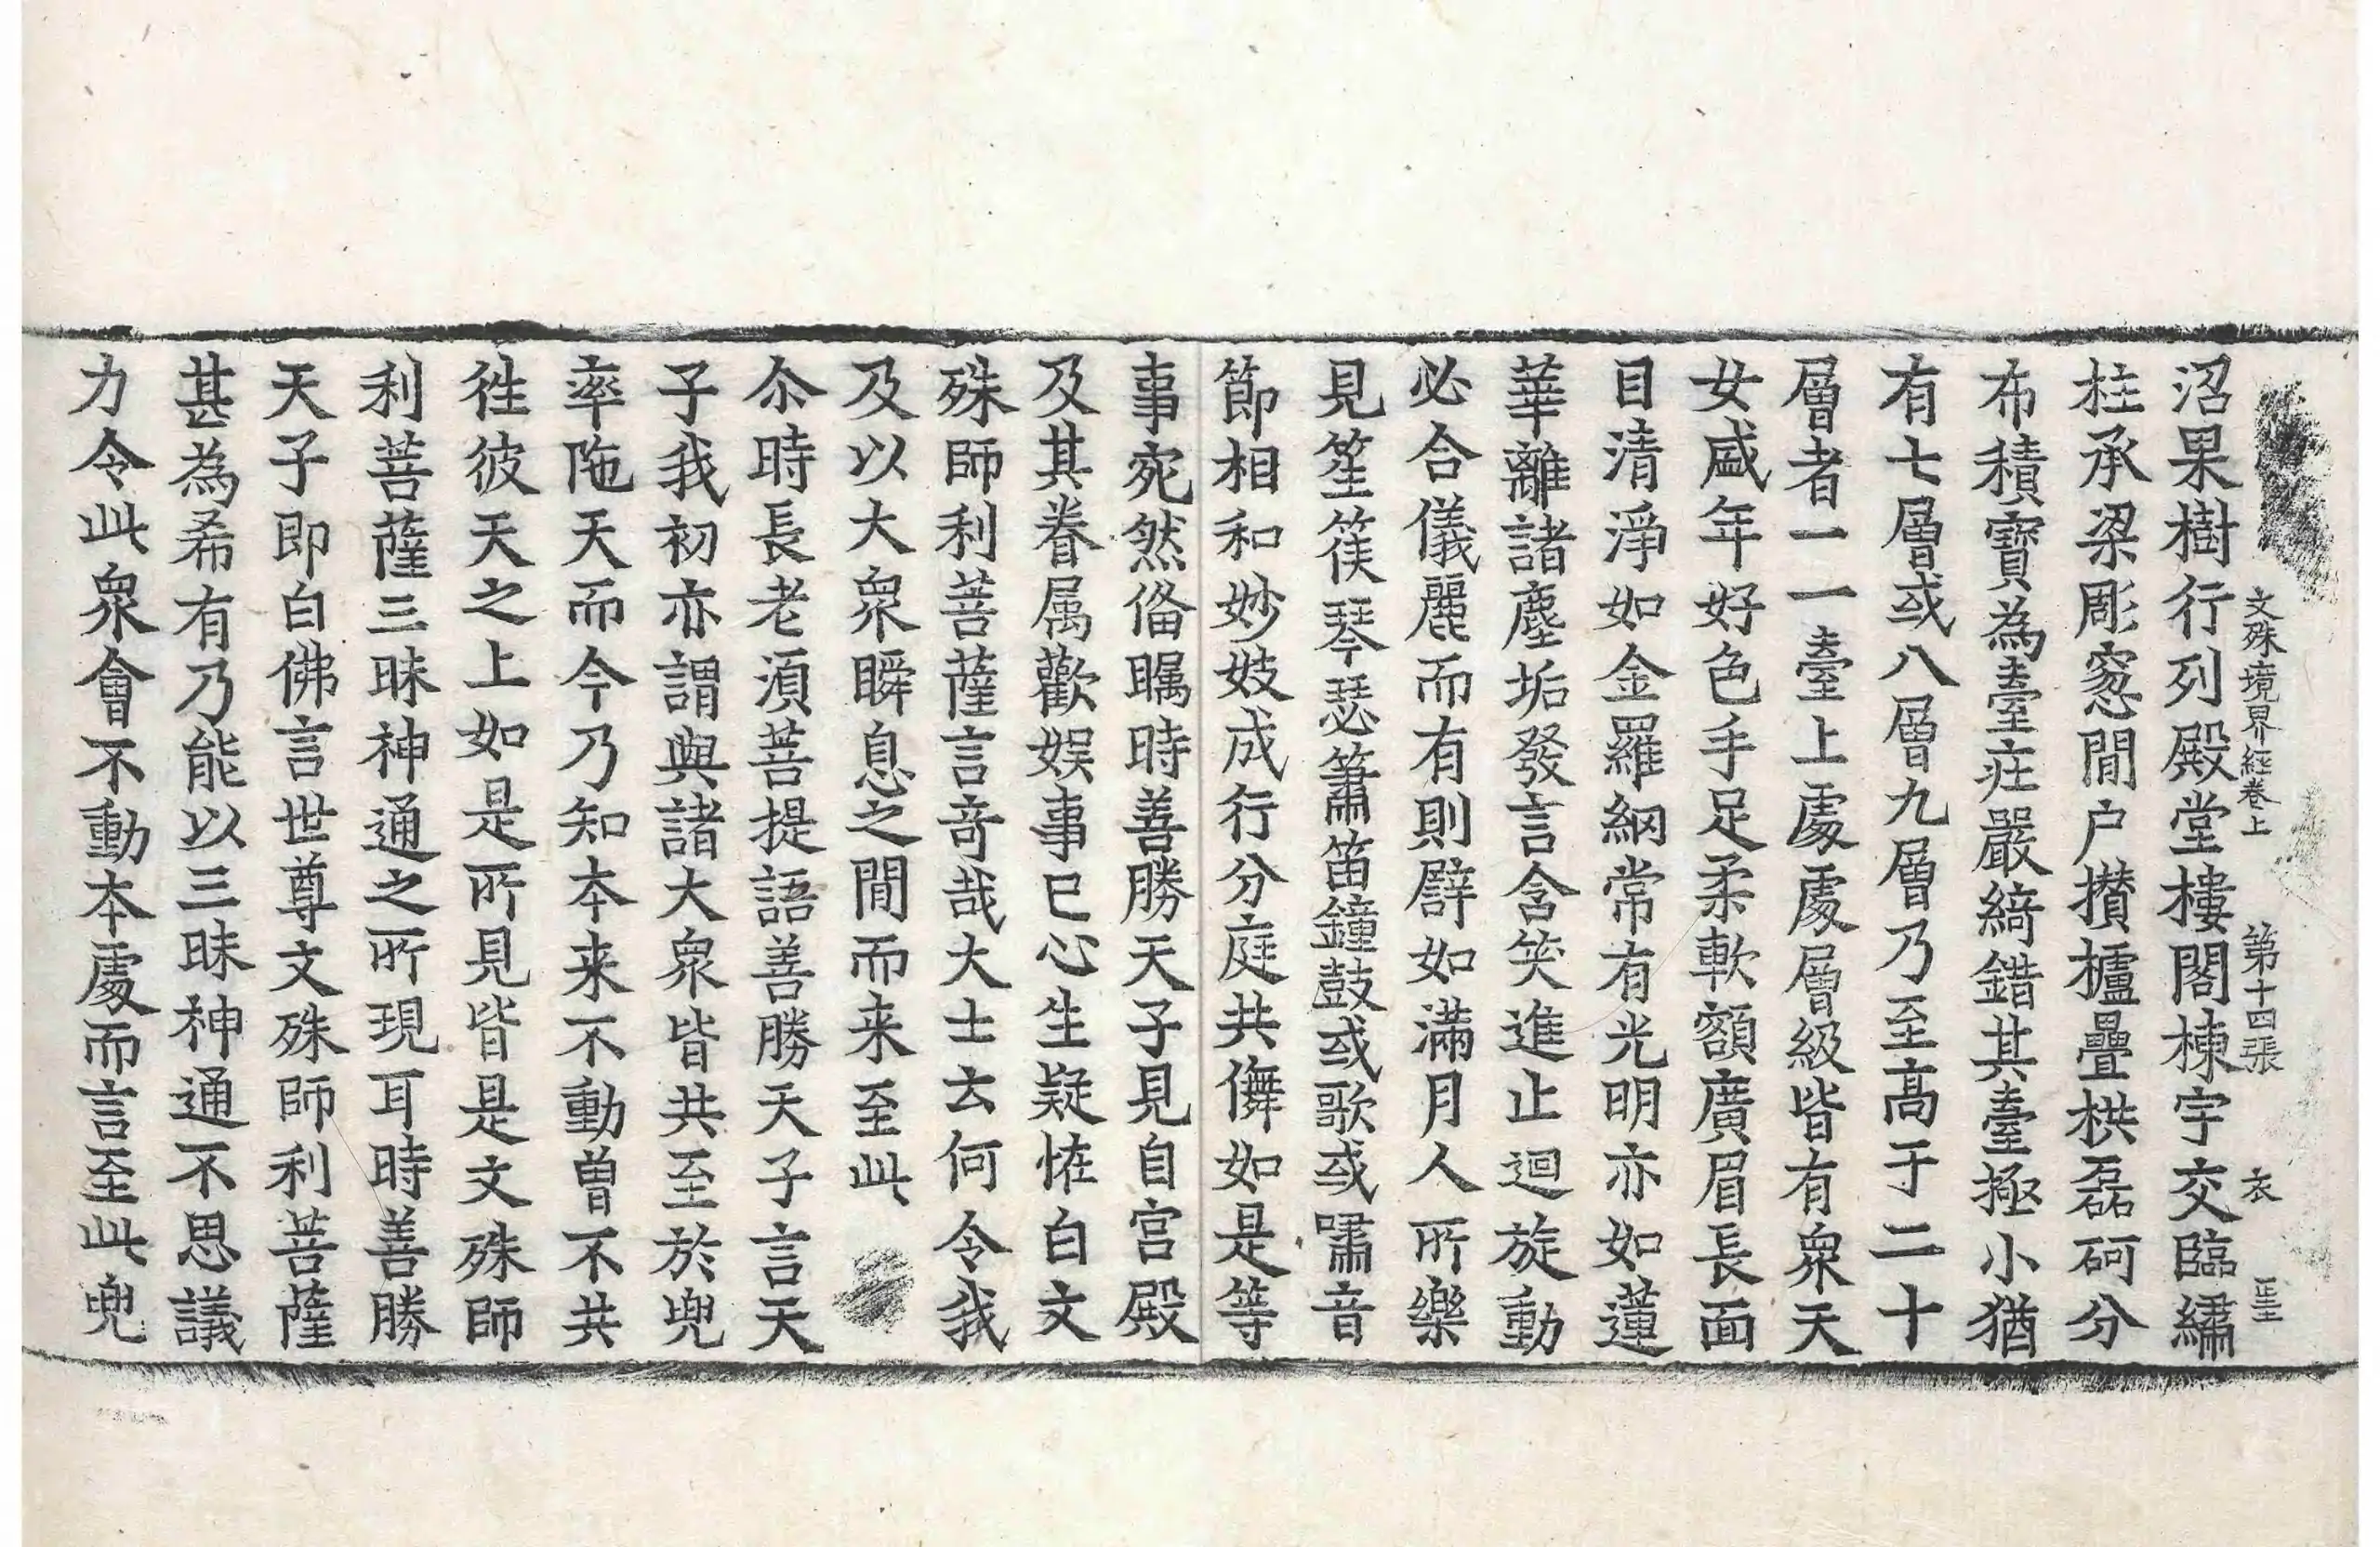 文殊境界經卷上 第十四張 衣
沼果樹行列殿堂樓閣棟宇交臨繡
柱承梁彫窓間户攢櫨疊栱磊砢分
布積寶為臺莊嚴綺錯其臺極小猶
有七層或八層九層乃至高于二十
層者一一臺上處處層級皆有衆天
女盛年好色手足柔軟額廣眉長面
目清淨如金羅網常有光明亦如蓮
華離諸塵垢發言含笑進止迴旋動
必合儀麗而有則譬如滿月人所樂
見笙篌琴瑟簫笛鐘鼓或歌或嘯音
節相和妙妓成行分庭共儛如是等
事宛然俻瞩時善勝天子見自宮殿
及其眷属歡娱事已心生疑恠白文
殊師利菩薩言竒哉大士云何令我
及以大衆瞬息之間而来至此
尒時長老湏菩提語善勝天子言天
子我初亦謂與諸大衆皆共至於兜
率陁天而今乃知本来不動曽不共
徃彼天之上如是所見皆是文殊師
利菩薩三昧神通之所現耳時善勝
天子即白佛言世尊文殊師利菩薩
甚為希有乃能以三昧神通不思議
力令此衆會不動本處而言至此兜